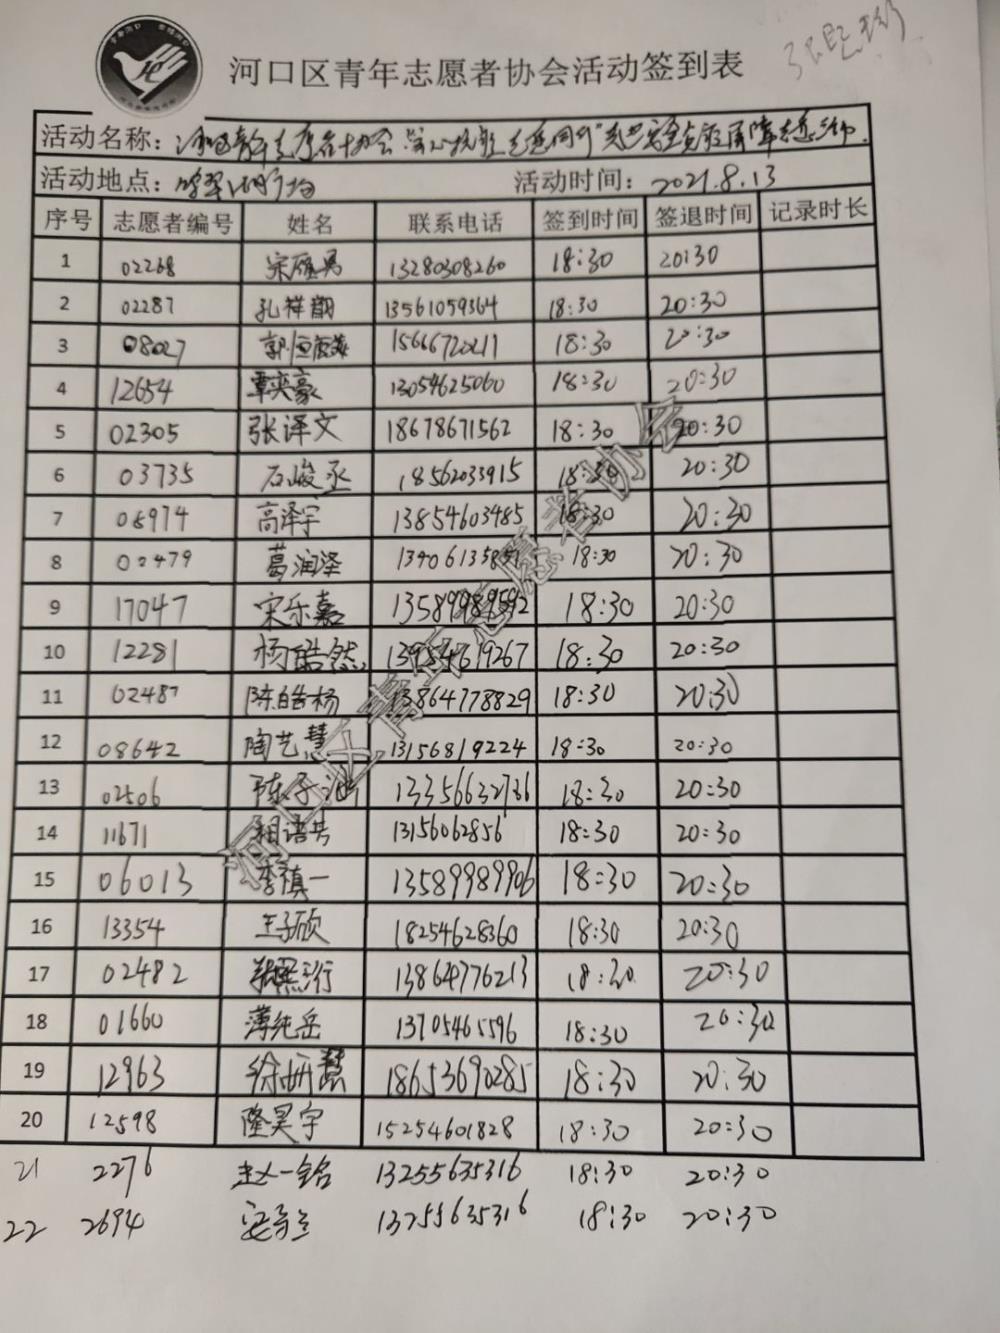 河口区青年志愿者协会活动签到表
活动名称：
活动地点： 活动时间：2021.8.13
序号 志愿者编号 姓名 联系电话 签到时间 签退时间 记录时长
1 02268 宋雁男 13280308260 18:30 20:30
2 02287 孔祥 13561059364 18:30 20:30
3 08027 郭恒 18:30 20:30
4 12654 覃奕豪 13054625060 18:30 20:30
5 02305 张译文 18678671562 18:30 20:30
6 03735 石峻丞 18562033915 18:30 20:30
7 08974 高泽宇 13854603485 18:30 20:30
8 00479 葛润泽 18:30 20:30
9 17047 宋乐嘉 13589989592 18:30 20:30
10 12281 杨皓然 13954619267 18:30 20:30
11 02487 陈皓杨 13864778829 18:30 20:30
12 08642 陶艺慧 13156819224 18:30 20:30
13 02506 陈子 13356632736 18:30 20:30
14 11671 相语芳 13156062856 18:30 20:30
15 06013 李禛一 13589989906 18:30 20:30
16 13354 王子硕 18254628360 18:30 20:30
17 02482 13864776213 18:30 20:30
18 01660 薄纯岳 13705465596 18:30 20:30
19 12963 徐妍慧 18653690285 18:30 20:30
20 12598 隆昊宇 15254601828 18:30 20:30
21 2276 赵一铭 13255635316 18:30 20:30
22 2694 13255635316 18:30 20:30
河口区青年志愿者协会